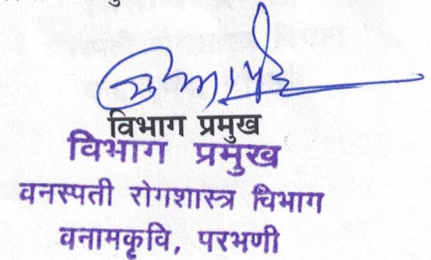 विभाग प्रमुख
विभाग प्रमुख
वनस्पती रोगशास्त्र विभाग
वनामकृवि, परभणी